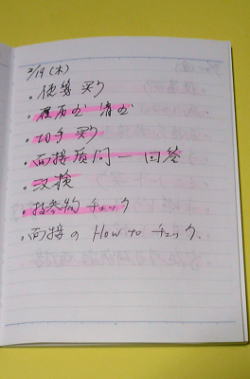 2/19(木)
・便箋 買う
・履歴書 清書
・切手 買う
・面接質問一回答
・漢検
・持参物 チェック
・面接の How to チェック.